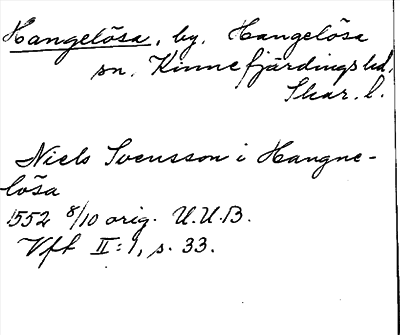 Hangelösa, by, Hangelösa
sn, Kinnefjärdings hd,
Skar. l.
Niels Svensson i Hangne-
lösa
1552 8/10 orig. U.U.B.
Vft II:1, s. 33.